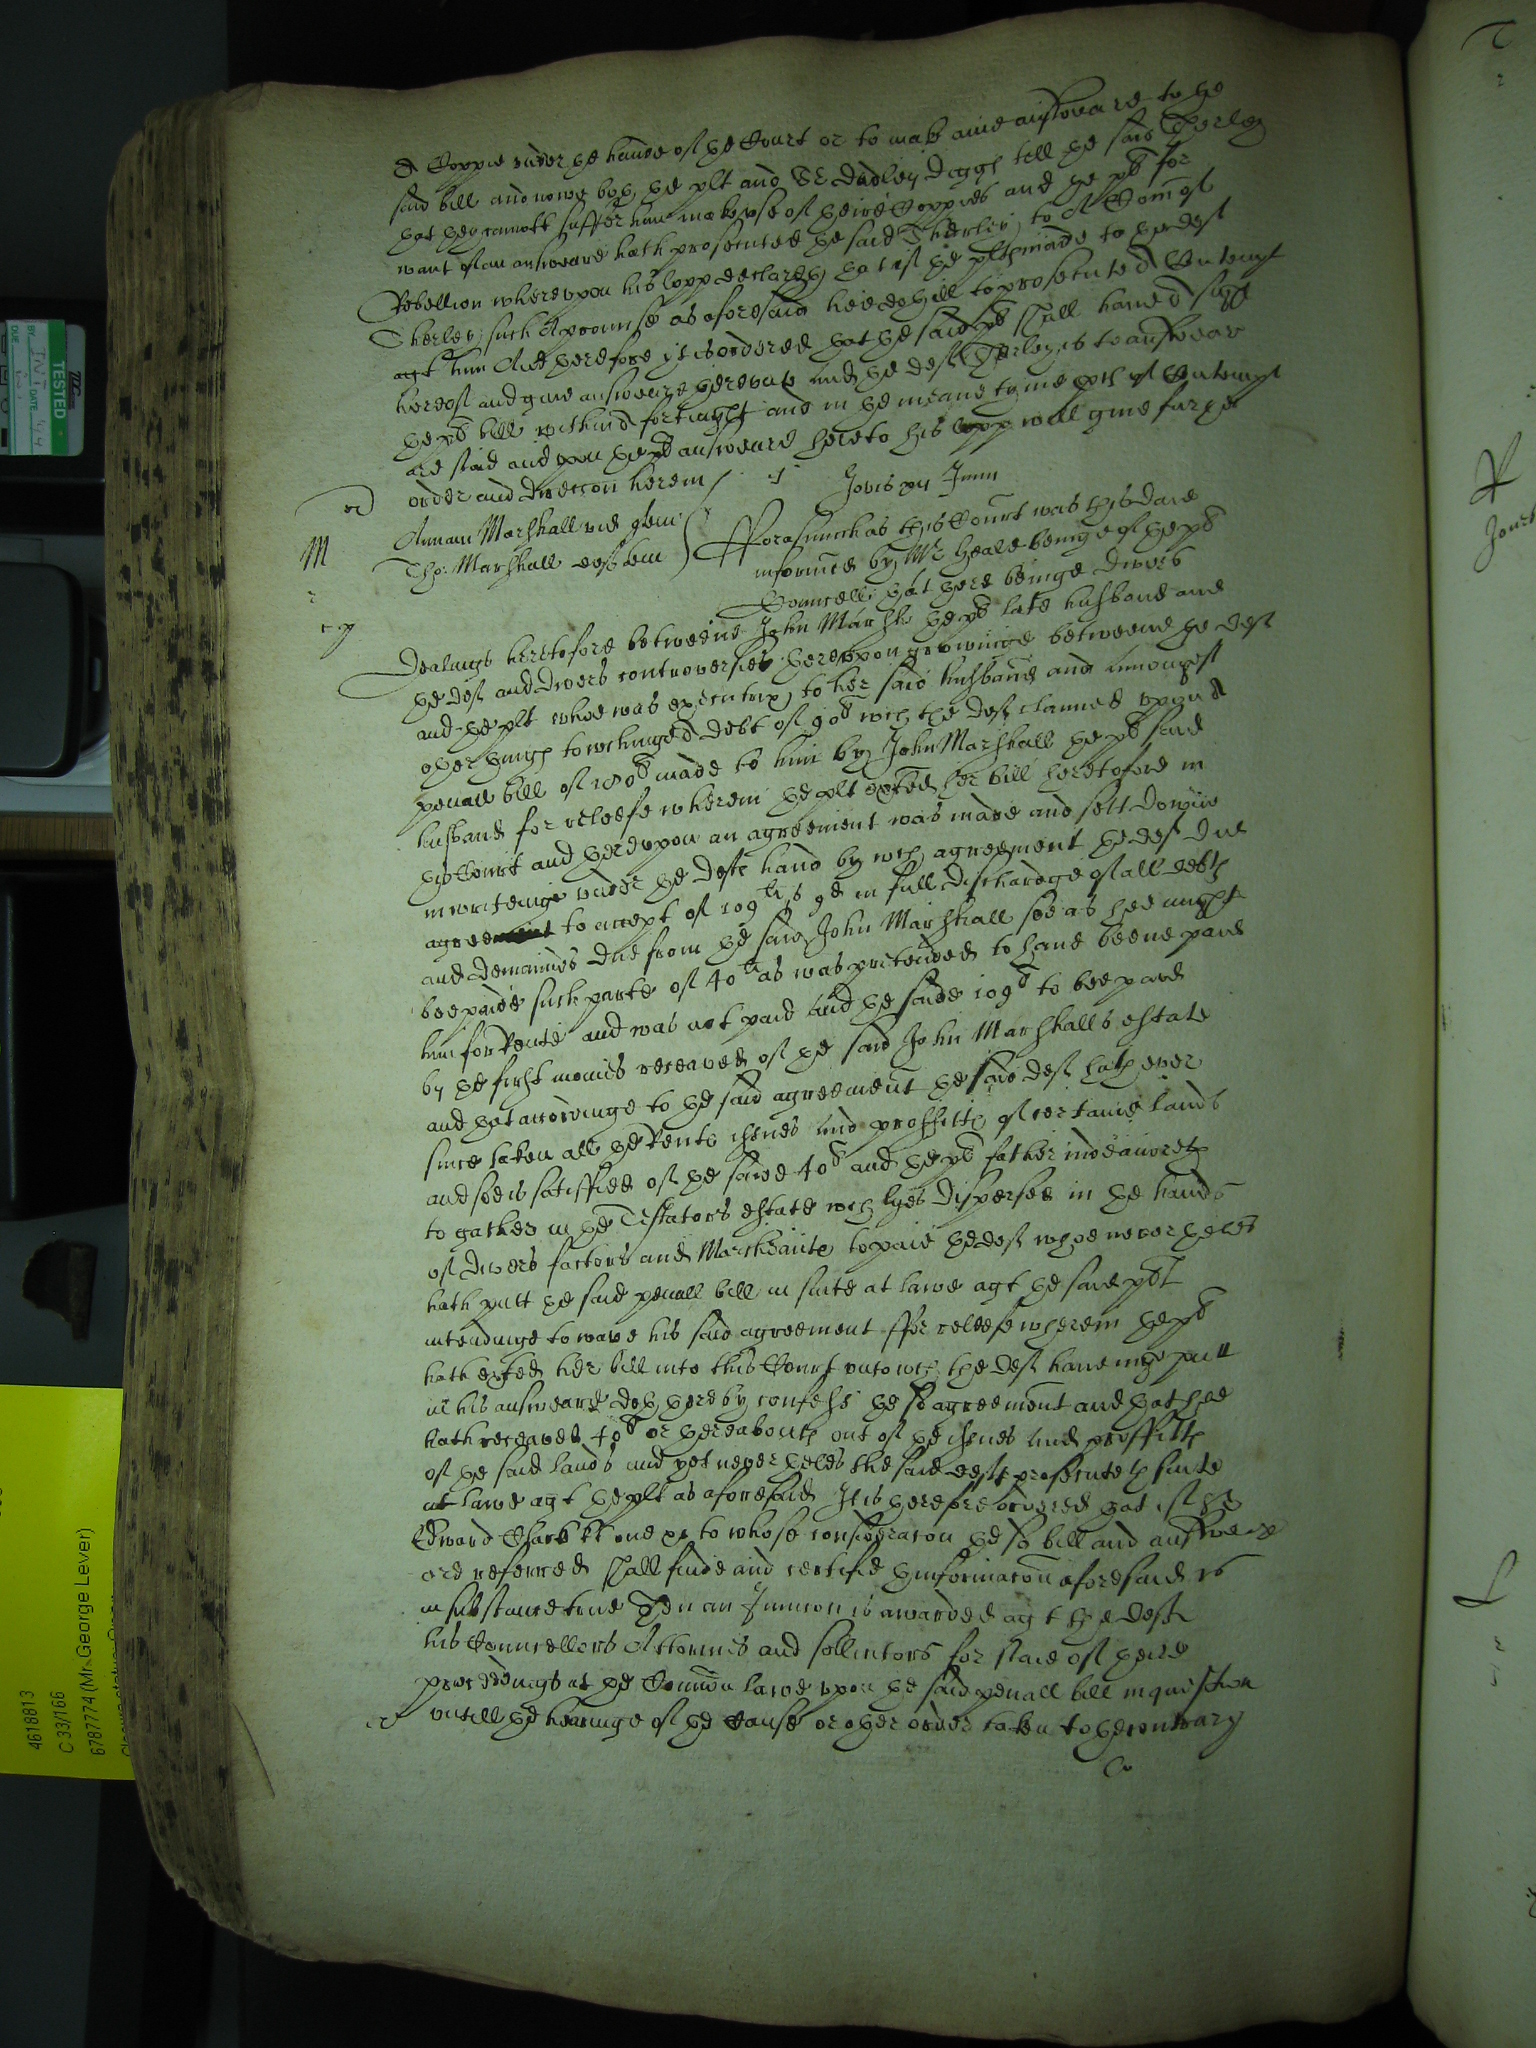 a Coppie under the hande of the Court or to make anie answeare to the
said bill and nowe both the plt and Sr Dudley Diggs tell the said Therley
that they cannott suffer him make use of theire Coppies and the plt for
want of an answeare hath prosecuted the said Therley to a Comm of
Rebellion whereupon his lopp declareth that if the plt made to the deft
Therley such a promise as aforesaid hee did ill to prosecute d Contempt
agt him And therefore it is ordered that the said plt shall have d
hereof and give answeare thereunto and the deft Therley is to answear
the plt bill within d fortnight and in the meane tyme pces of Contempt
are staid and upon the plt answeare hereto his lopp will give further
order and direccon herein
Jovis xii Junii
M
Annam Marshall vid quer
Tho: Marshall deft
Forasmuch as this Court was this daie
informed by Mr Heale beinge of the plt
Councell that there beinge divers
dealings heretofore betweene John Marshall the plt late husband and
the deft and divers controversies thereupon growinge betweene the deft
and the plt whoe was executrix to her said husband and amongest
other things towchinge d debt of 90l wch the deft claimed upon d
penall bill of 180l made to him by John Marshall the plt said
husband for releefe wherein the plt exhted her bill heretofore in
this Court and thereupon an agreement was made and sett downe
in writeinge under the defts hand by wch agreement the deft did
agree to accept of 109l s 9d in full dischardge of all debts
and demaunds due from the said John Marshall soe as hee might
bee paide such parte of 40l as was pretended to have beene paid
him for Rente and was not paid and the saide 109l to bee paid
by the first monies receaved of the said John Marshalls estate
and that accordinge to the said agreement the said deft hath ever
since taken all the Rents issues and proffitts of certaine lands
and soe is satisfied of the saide 40l and the plt father indeavoreth
to gather in the Testators estate wch lyes dispersed in the hands
of divers factors and Marchaunts to paie the deft whoe nevertheles
hath putt the said penall bill in suite at lawe agt the said plt
intendinge to wave his said agreement ffor releefe wherein the plt
hath exhted her bill into this Court unto wch the deft haveinge putt
in his answeare doth thereby confesse the sd agreement and that hee
hath receaved 40l or thereabouts out of the issues and proffitts
of the said lands and yet nevertheles the said deft prosecuteth suite
at lawe agt the plt as aforesaid It is therefore ordered that if Sr
Edward one to whose consideracon the sd bill and answeare
are referred shall finde and certifie thinformacon aforesaid is
in substance true Then an Iniuncon is awarded agt the deft
his Councellors Attornies and sollicitors for staie of theire
proceedings at the Common lawe upon the said penall bill in question
untill the hearinge of the Cause or other order taken to the contrary
TESTED
BY
DATE
4618813
C 33/166
6787774 (Mr. George Lever)